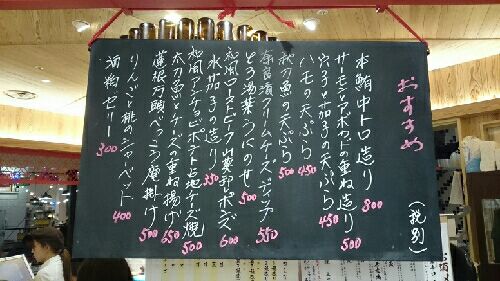 おすすめ
(税別)
本鮪中トロ造り 800
サーモンとアボカドの重ね造り 500
穴子と茄子の天ぷら 450
ハモの天ぷら 450
秋刀魚の天ぷら 500
奈良漬クリームチーズディップ 550
とろ湯葉うにのせ 500
和風ローストビーフ山葵卸しポン 600
水茄子の造り 350
和風アンチョビポテト占地チーズ焼 500
太刀魚とチーズの重ね揚げ 650
蓮根万頭べっこう庵掛け 500
りんごと桃のシャーベット 400
酒粕ゼリー 300